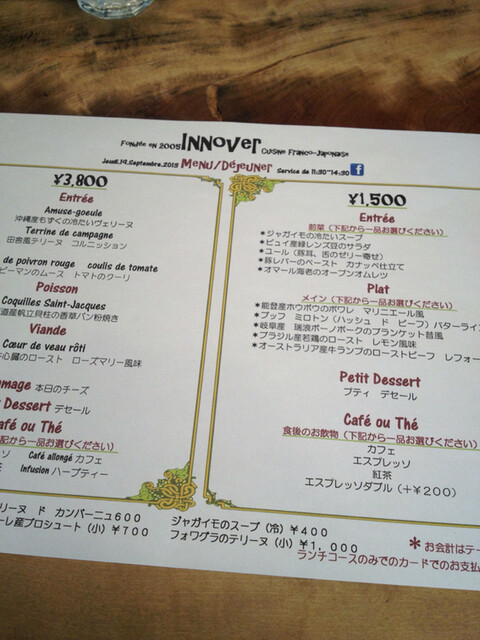 Fondée en 2005 INNOVer Cuisine Franco-Japonaise
Jeudi,19,Septembre,2013 Menu/Déjeuner Service de 11:30~14:30
¥3,800
Entrée
Amuse-gueule
沖縄産もずくの冷たいヴェリーヌ
Terrine de campagne
田舎風テリーヌ コルニッション
de poivron rouge coulis de tomate
ピーマンのムース トマトのクーリ
Poisson
Coquilles Saint-Jacques
道産帆立貝柱の香草パン粉焼き
Viande
Cœur de veau rôti
牛心臓のロースト ローズマリー風味
本日のチーズ
Dessert デセール
Café ou Thé
下記から一品お選びください）
Café allongé カフェ
Infusion ハーブティー
¥1,500
Entrée
前菜（下記から一品お選びください）
＊ジャガイモの冷たいスープ
＊ピュイ産緑レンズ豆のサラダ
＊ユール（豚耳、舌のゼリー寄せ）
＊豚レバーのペースト カナッペ仕立て
＊オマール海老のオープンオムレツ
Plat
メイン（下記から一品お選びください）
＊能登産ホウボウのポワレ マリニエール風
＊ブッフ ミロトン（ハッシュ ド ビーフ）バターライ
＊岐阜産 瑞浪ボーノポークのブランケット昔風
＊ブラジル産若鶏のロースト レモン風味
＊オーストラリア産牛ランプのローストビーフ レフォー
Petit Dessert
プティ デセール
Café ou Thé
食後のお飲物（下記から一品お選びください）
カフェ
エスプレッソ
紅茶
エスプレッソダブル（＋¥200）
リーヌ ド カンパーニュ６００
ーレ産プロシュート（小）¥７００
ジャガイモのスープ（冷）¥４００
フォワグラのテリーヌ（小）¥１，０００
＊お会計はテー
ランチコースのみでのカードでのお支払